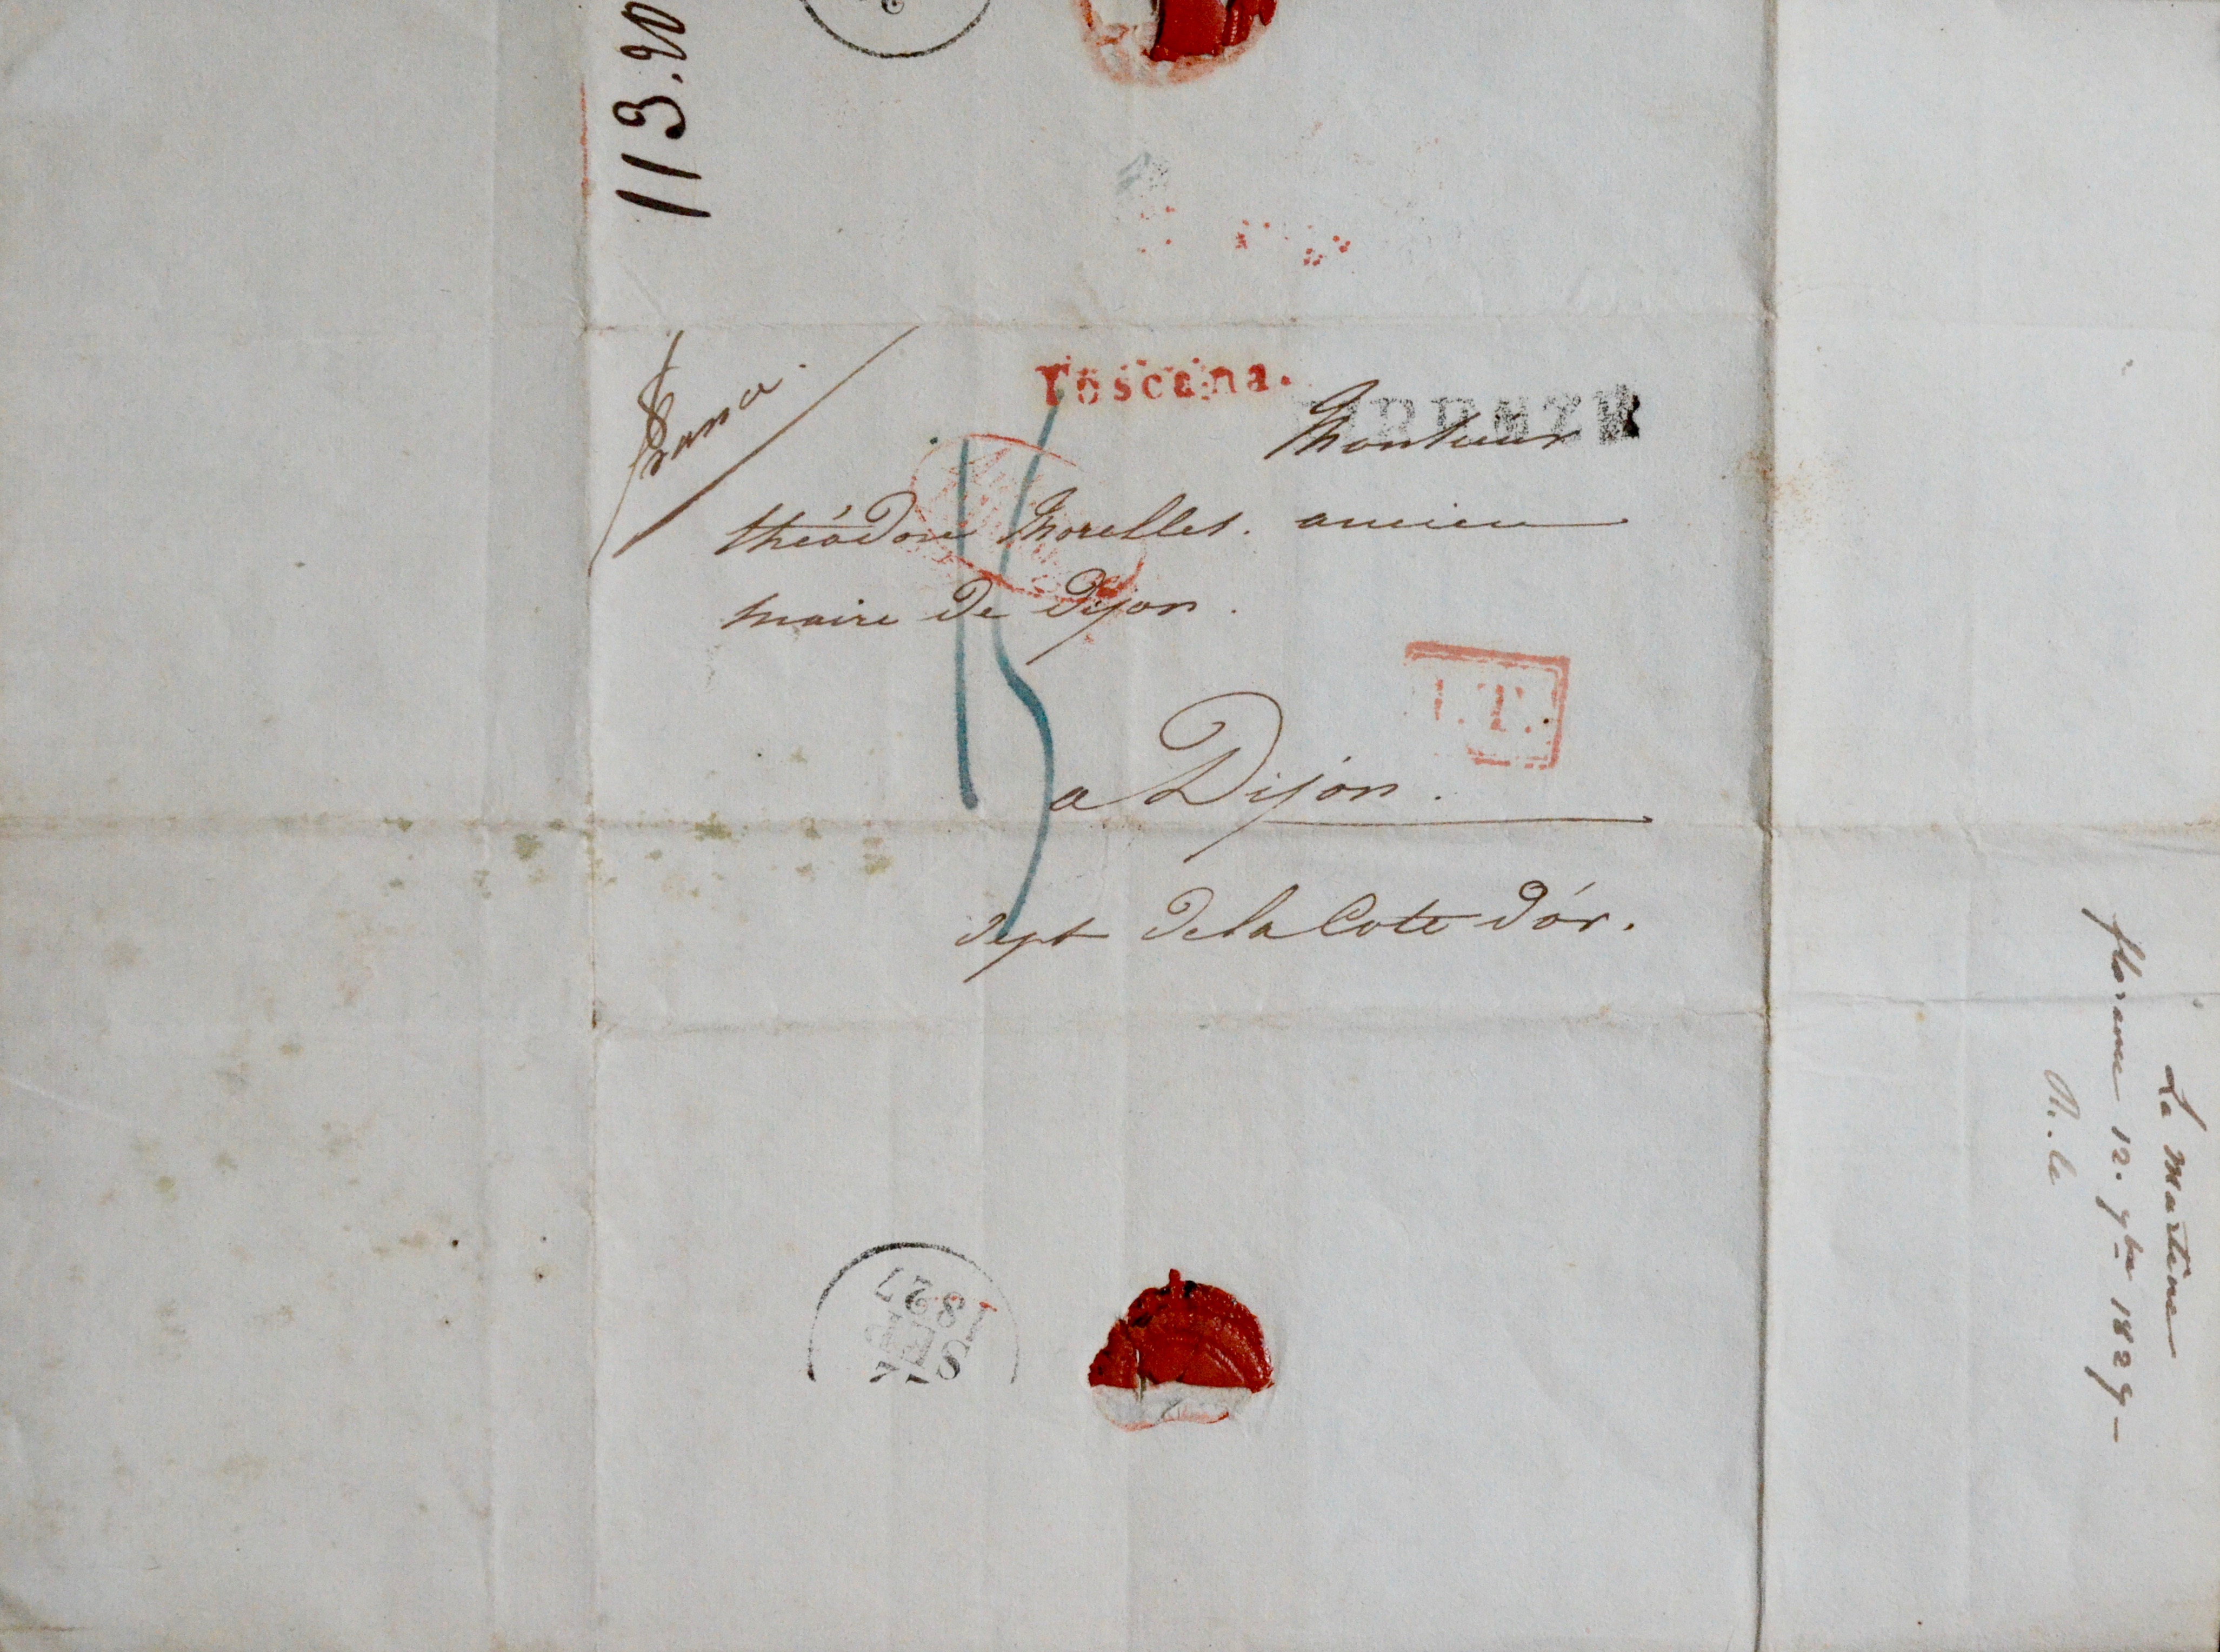 113.20
Toscana.
FIRENZE
france.
Monsieur
théodore Morellet. ancien
maire de Dijon.
15
T.
a Dijon.
dept de la Cote d'ór.
SEP
1827
La Martine
florence 12. 7bre 1827 —
R. le